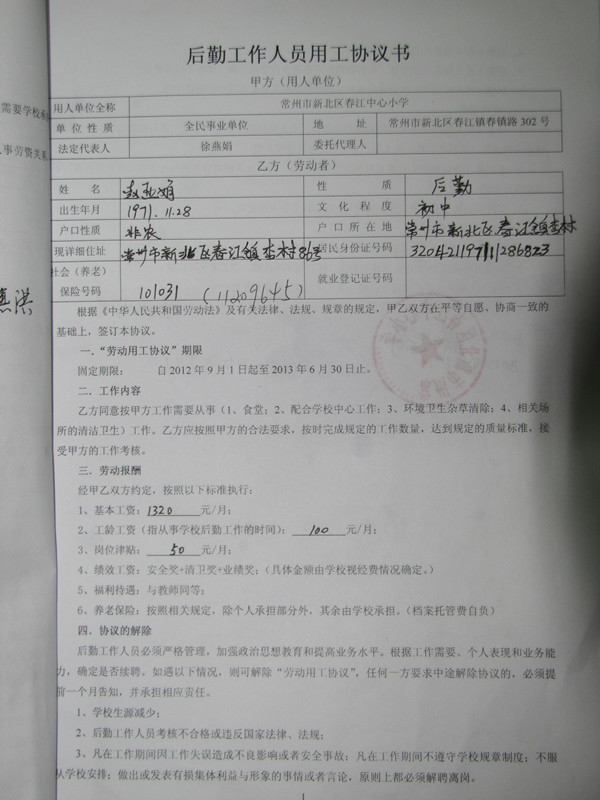 后勤工作人员用工协议书
甲方（用人单位）
用人单位全称 常州市新北区春江中心小学
单位性质 全民事业单位 地址 常州市新北区春江镇春镇路302号
法定代表人 徐燕娟 委托代理人
乙方（劳动者）
姓名 赵亚娟 性质 后勤
出生年月 1971.11.28 文化程度 初中
户口性质 非农 户口所在地 常州市新北区春江镇杏村
现详细住址 常州市新北区春江镇杏村86号 居民身份证号码
社会（养老）
保险号码 101031 (11209645) 就业登记证号码
根据《中华人民共和国劳动法》及有关法律、法规、规章的规定，甲乙双方在平等自愿、协商一致的
基础上，签订本协议。
一．“劳动用工协议”期限
固定期限： 自2012年9月1日起至2013年6月30日止。
二．工作内容
乙方同意按甲方工作需要从事（1、食堂；2、配合学校中心工作；3、环境卫生杂草清除；4、相关场
所的清洁卫生）工作。乙方应按照甲方的合法要求，按时完成规定的工作数量，达到规定的质量标准，接
受甲方的工作考核。
三．劳动报酬
经甲乙双方约定，按照以下标准执行：
1、基本工资：1320元/月；
2、工龄工资（指从事学校后勤工作的时间）：100元/月；
3、岗位津贴：50元/月；
4、绩效工资：安全奖+清卫奖+业绩奖；（具体金额由学校视经费情况确定。）
5、福利待遇：与教师同等；
6、养老保险：按照相关规定，除个人承担部分外，其余由学校承担。（档案托管费自负）
四．协议的解除
后勤工作人员必须严格管理，加强政治思想教育和提高业务水平。根据工作需要、个人表现和业务能
力，确定是否续聘。如遇以下情况，则可解除“劳动用工协议”，任何一方要求中途解除协议的，必须提
前一个月告知，并承担相应责任。
1、学校生源减少；
2、后勤工作人员考核不合格或违反国家法律、法规；
3、凡在工作期间因工作失误造成不良影响或者安全事故；凡在工作期间不遵守学校规章制度；不服
从学校安排；做出或发表有损集体利益与形象的事情或者言论，原则上都必须解聘离岗。